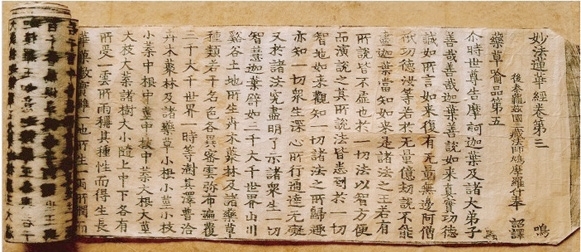 妙法蓮華經卷第三 鳴
後秦龜茲國三藏法師鳩摩羅什奉 詔譯
藥草喻品第五
尒時世尊告摩訶迦葉及諸大弟子
善哉善哉迦葉善說如來真實功德
誠如所言如來復有无量無邊阿僧
祇功德汝等若於无量億劫說不能
盡迦葉當知如來是諸法之王若有
所說皆不虛也於一切法以智方便
而演說之其所說法皆悉到於一切
智地如來觀知一切諸法之所歸趣
亦知一切衆生深心所行通達无礙
又於諸法究盡明了示諸衆生一切
智慧迦葉譬如三千大千世界山川
谿谷土地所生卉木叢林及諸藥草
種類若干名色各異密雲弥布遍覆
三千大千世界一時等澍其澤普洽
卉木叢林及諸藥草小根小莖小枝
小葉中根中莖中枝中葉大根大莖
大枝大葉諸樹大小隨上中下各有
所受一雲所雨稱其種性而得生長
華菓敷實雖一地所生一雨所潤而